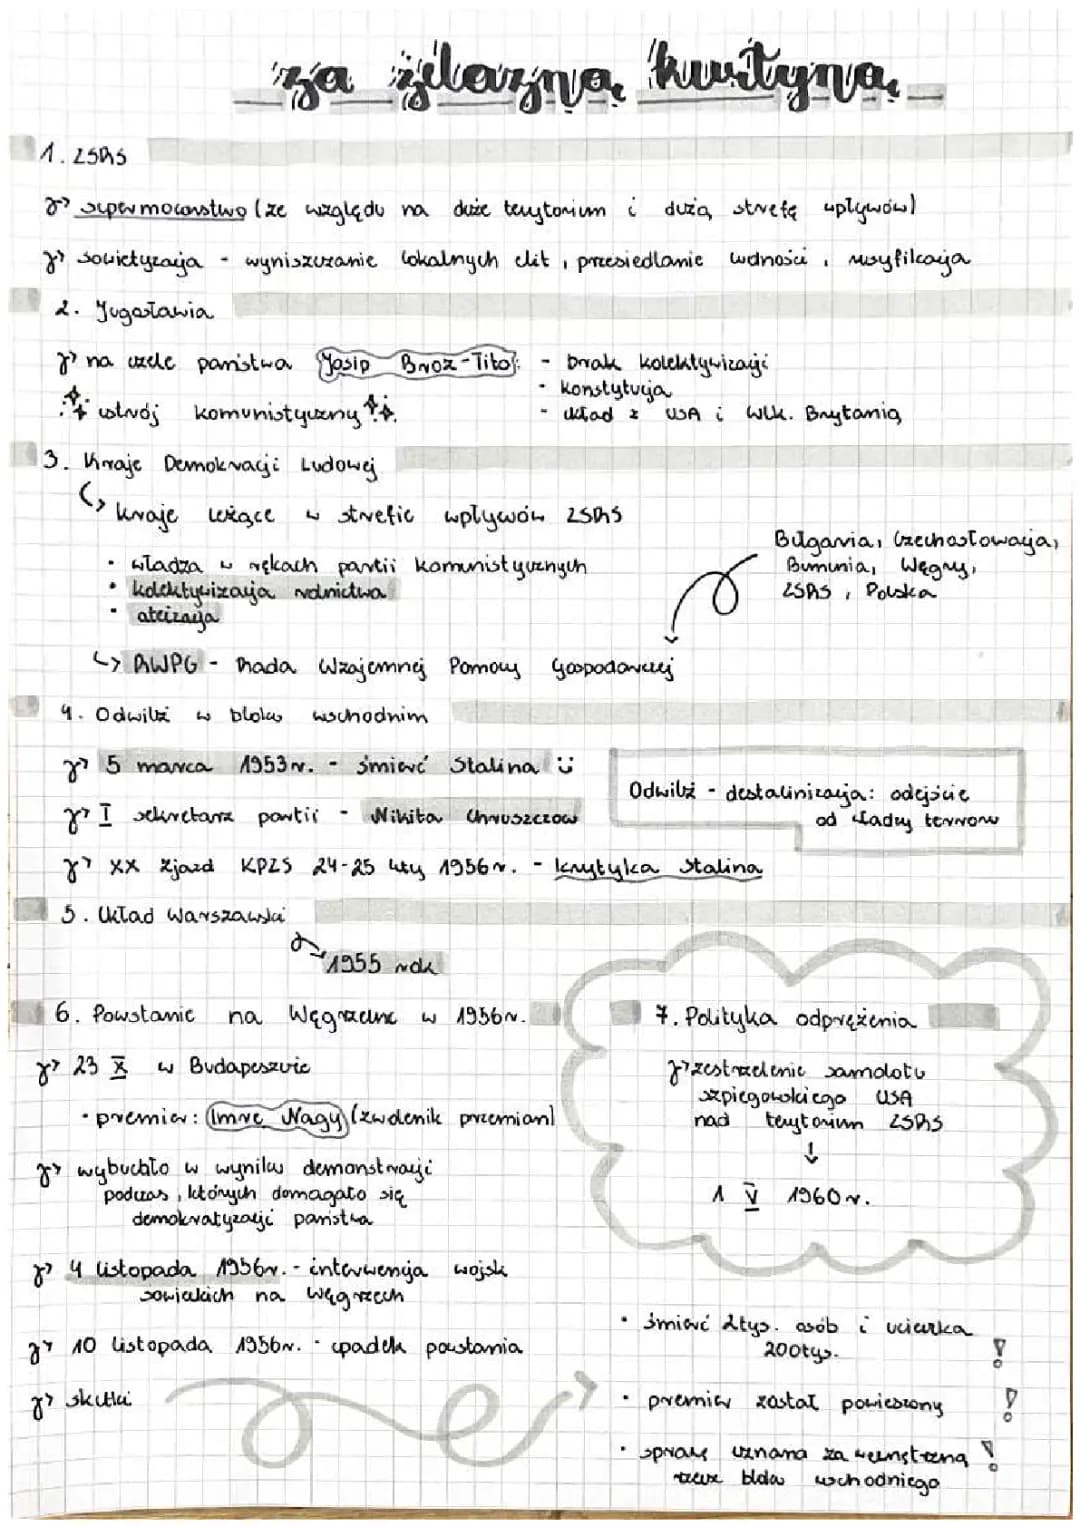 za żelazną kurtyną
1. ZSRS
supermocarstwo (ze względu na duże terytorium i dużą strefę wpływów)
sowietyzacja - wyniszczanie lokalnych elit, przesiedlanie ludności, rusyfikacja
2. Jugosławia
na czele państwa Josip Broz-Tito: - brak kolektywizacji
- konstytucja
ustrój komunistyczny - układ z USA i Wlk. Brytanią
3. Kraje Demokracji Ludowej
kraje leżące w strefie wpływów ZSRS
Bułgaria, Czechosłowacja,
• władza w rękach partii komunistycznych Rumunia, Węgry,
• kolektywizacja rolnictwa ZSRS, Polska
• ateizacja
↳ RWPG - Rada Wzajemnej Pomocy Gospodarczej
4. Odwilż w bloku wschodnim
5 marca 1953r. - śmierć Stalina
Odwilż - destalinizacja: odejście
od władzy terroru
I sekretarz partii - Nikita Chruszczow
XX Zjazd KPZS 24-25 luty 1956r. - krytyka Stalina
5. Układ Warszawski
1955 rok
6. Powstanie na Węgrzech w 1956r.
23 X w Budapeszcie
• premier: Imre Nagy (zwolenik przemian)
wybuchło w wyniku demonstracji
podczas, których domagało się
demokratyzacji państwa
4 listopada 1956r. - interwencja wojsk
sowieckich na Węgrzech
10 listopada 1956r. - upadek powstania
skutki
7. Polityka odprężenia
zestrzelenie samolotu
szpiegowskiego USA
nad terytorium ZSRS
↓
1 V 1960r.
• śmierć 2tys. osób i ucieczka
200tys. !
• premier został powieszony !
• sprawę uznana za wewnętrzną !
bloku wschodniego